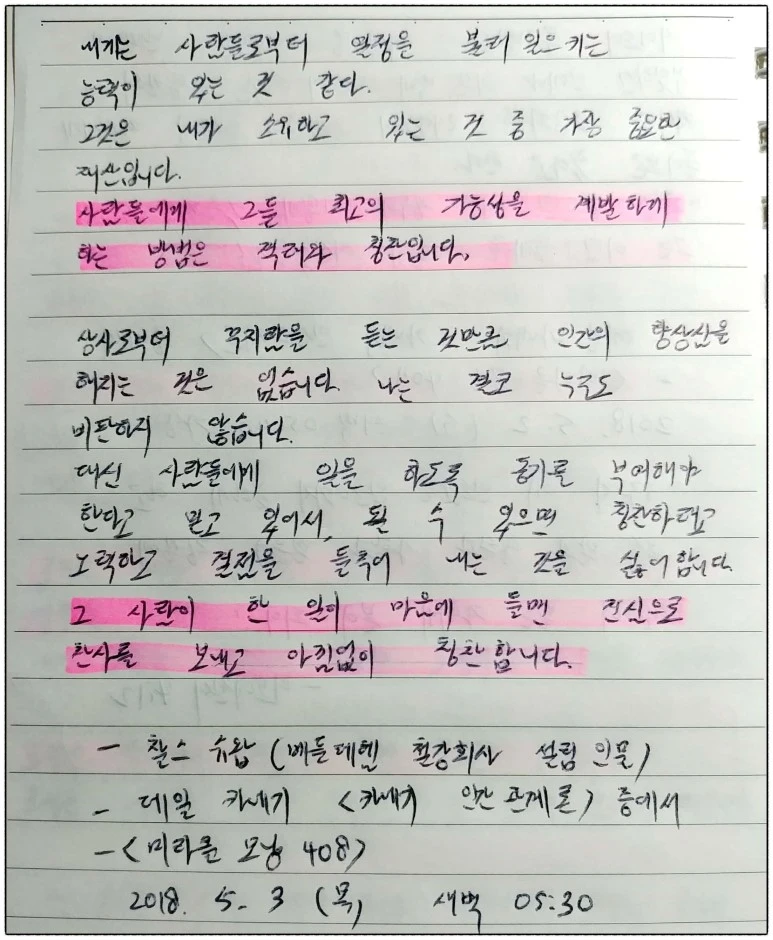 내게는 사람들로부터 열정을 불러 일으키는
능력이 있는 것 같다.
그것은 내가 소유하고 있는 것 중 가장 중요한
재산입니다.
사람들에게 그들 최고의 가능성을 계발하게
하는 방법은 격려와 칭찬입니다.
상사로부터 꾸지람을 듣는 것만큼 인간의 향상심을
해치는 것은 없습니다. 나는 결코 누구도
비판하지 않습니다.
대신 사람들에게 일을 하도록 동기를 부여해야
한다고 믿고 있어서, 될 수 있으면 칭찬하려고
노력하고 결점을 들추어 내는 것을 싫어합니다.
그 사람이 한 일이 마음에 들면 진심으로
찬사를 보내고 아낌없이 칭찬합니다.
- 찰스 슈왑 (베들레헴 철강회사 설립 인물)
- 데일 카네기 <카네기 인간 관계론> 중에서
- <미라클 모닝 408>
2018. 5. 3 (목) 새벽 05:30